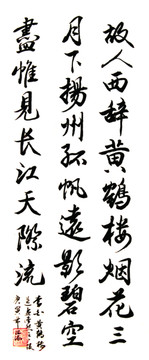 故人西辞黄鶴楼烟花三
月下揚州孤帆遠影碧空
盡惟見長江天際流
李白黄鶴楼